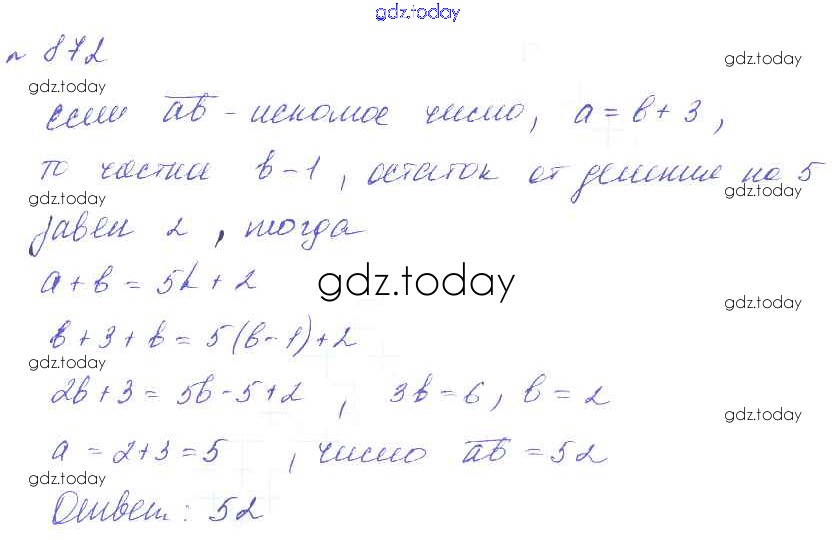 gdz.today
№ 872
gdz.today
gdz.today
если ab - искомое число, a = b + 3,
то частное b - 1, остаток от деление на 5
gdz.today
gdz.today
равен 2, тогда
a + b = 5k + 2
gdz.today
gdz.today
b + 3 + b = 5(b - 1) + 2
gdz.today
2b + 3 = 5b - 5 + 2, 3b = 6, b = 2
gdz.today
a = 2 + 3 = 5, число ab = 52
gdz.today
Ответ: 52